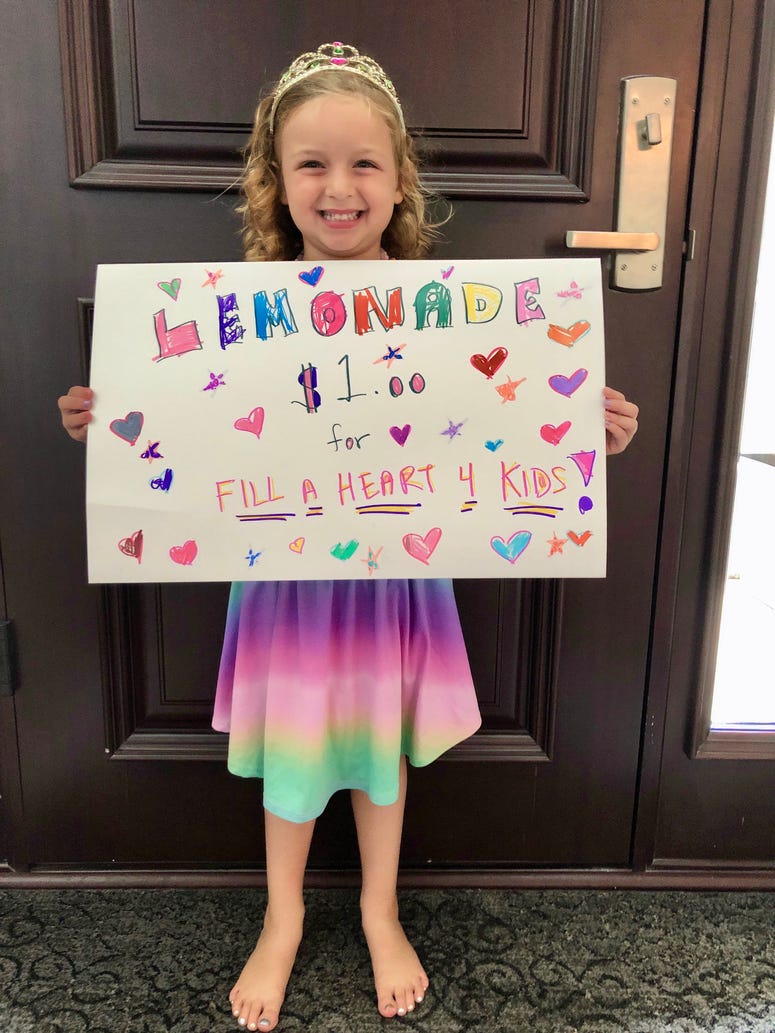 LEMONADE
$1.00
for
FILL A HEART 4 KIDS!